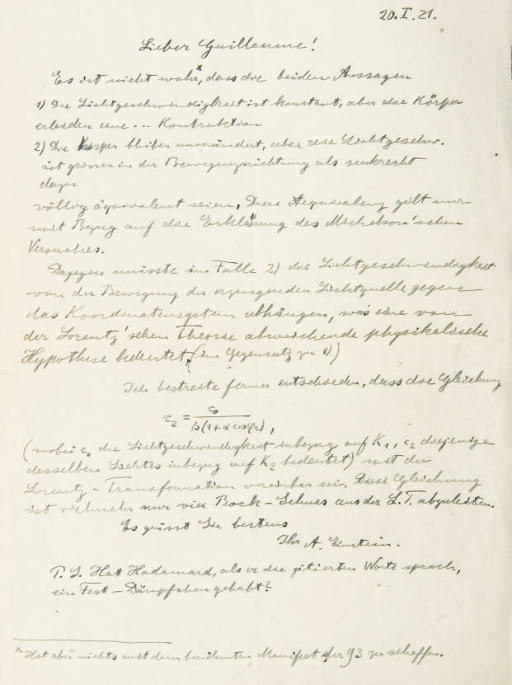 20.I.21.
Lieber Guillaume!
Es ist nicht wahr,* dass die beiden Aussagen
1) Die Lichtgeschwindigkeit ist konstant, aber die Körper
erleiden eine ... Kontraktion
2) Die Körper bleiben unverändert, aber die Lichtgeschw.
ist grösser in der Bewegungsrichtung als senkrecht
dazu
völlig äquivalent seien. Diese Aequivalenz gilt nur
mit Bezug auf die Erklärung des Michelson'schen
Versuches.
Dagegen müsste im Falle 2) die Lichtgeschwindigkeit
von der Bewegung der erzeugenden Lichtquelle gegen
das Koordinatensystem abhängen, was eine von
der Lorentz'schen Theorie abweichende physikalische
Hypothese bedeutet, (im Gegensatz zu 1))
Ich bestreite ferner entschieden, dass die Gleichung
c₂ = c₀ / β(1+α cos φ₂),
(wobei c₀ die Lichtgeschwindigkeit inbezug auf K₁, c₂ diejenige
desselben Lichtes inbezug auf K₂ bedeutet) mit der
Lorentz-Transformation vereinbar sei. Diese Gleichung
ist vielmehr nur via Bock-Schuss aus der L.T. abzuleiten.
Es grüsst Sie bestens
Ihr A. Einstein.
P.S. Hat Hadamard, als er die zitierten Worte sprach,
ein Fest-Dämpfchen gehabt?
* Hat aber nichts mit dem berühmten Manifest der 93 zu schaffen.